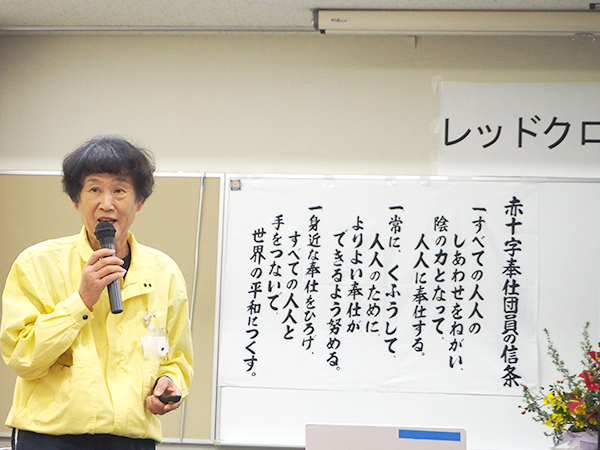 レッドクロ
赤十字奉仕団員の信条
一すべての人人の
しあわせをねがい、
陰の力となって、
人人に奉仕する。
一常に、くふうして、
人人のために
よりよい奉仕が
できるよう努める。
一身近な奉仕をひろげ、
すべての人人と
手をつないで、
世界の平和につくす。